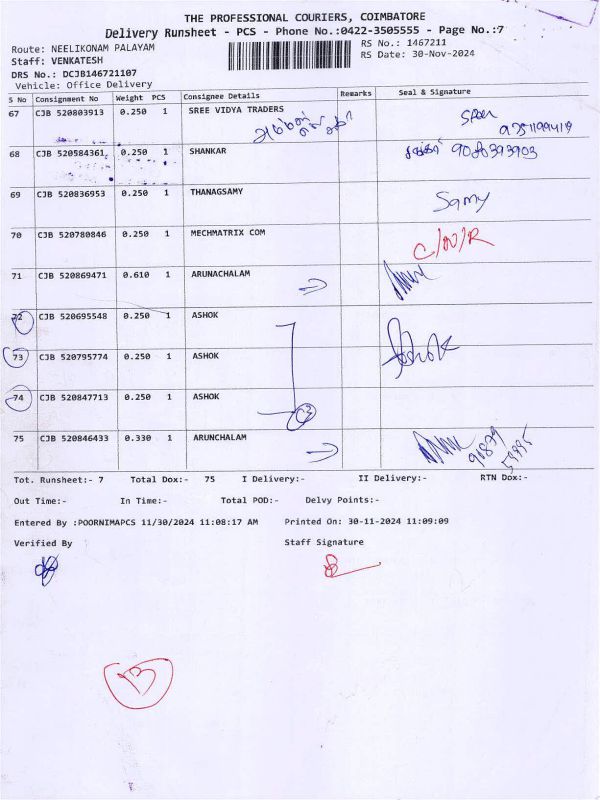 THE PROFESSIONAL COURIERS, COIMBATORE
Delivery Runsheet - PCS - Phone No.:0422-3505555 - Page No.:7
Route: NEELIKONAM PALAYAM
RS No.: 1467211
Staff: VENKATESH
RS Date: 30-Nov-2024
DRS No.: DCJB146721107
Vehicle: Office Delivery
S No Consignment No Weight PCS Consignee Details Remarks Seal & Signature
67 CJB 520803913 0.250 1 SREE VIDYA TRADERS
68 CJB 520584361 0.250 1 SHANKAR
69 CJB 520836953 0.250 1 THANAGSAMY Samy
70 CJB 520780846 0.250 1 MECHMATRIX COM C/N/R
71 CJB 520869471 0.610 1 ARUNACHALAM
72 CJB 520695548 0.250 1 ASHOK
73 CJB 520795774 0.250 1 ASHOK Ashok
74 CJB 520847713 0.250 1 ASHOK
3
75 CJB 520846433 0.330 1 ARUNCHALAM
Tot. Runsheet:- 7 Total Dox:- 75 I Delivery:- II Delivery:- RTN Dox:-
Out Time:- In Time:- Total POD:- Delvy Points:-
Entered By :POORNIMAPCS 11/30/2024 11:08:17 AM Printed On: 30-11-2024 11:09:09
Verified By Staff Signature